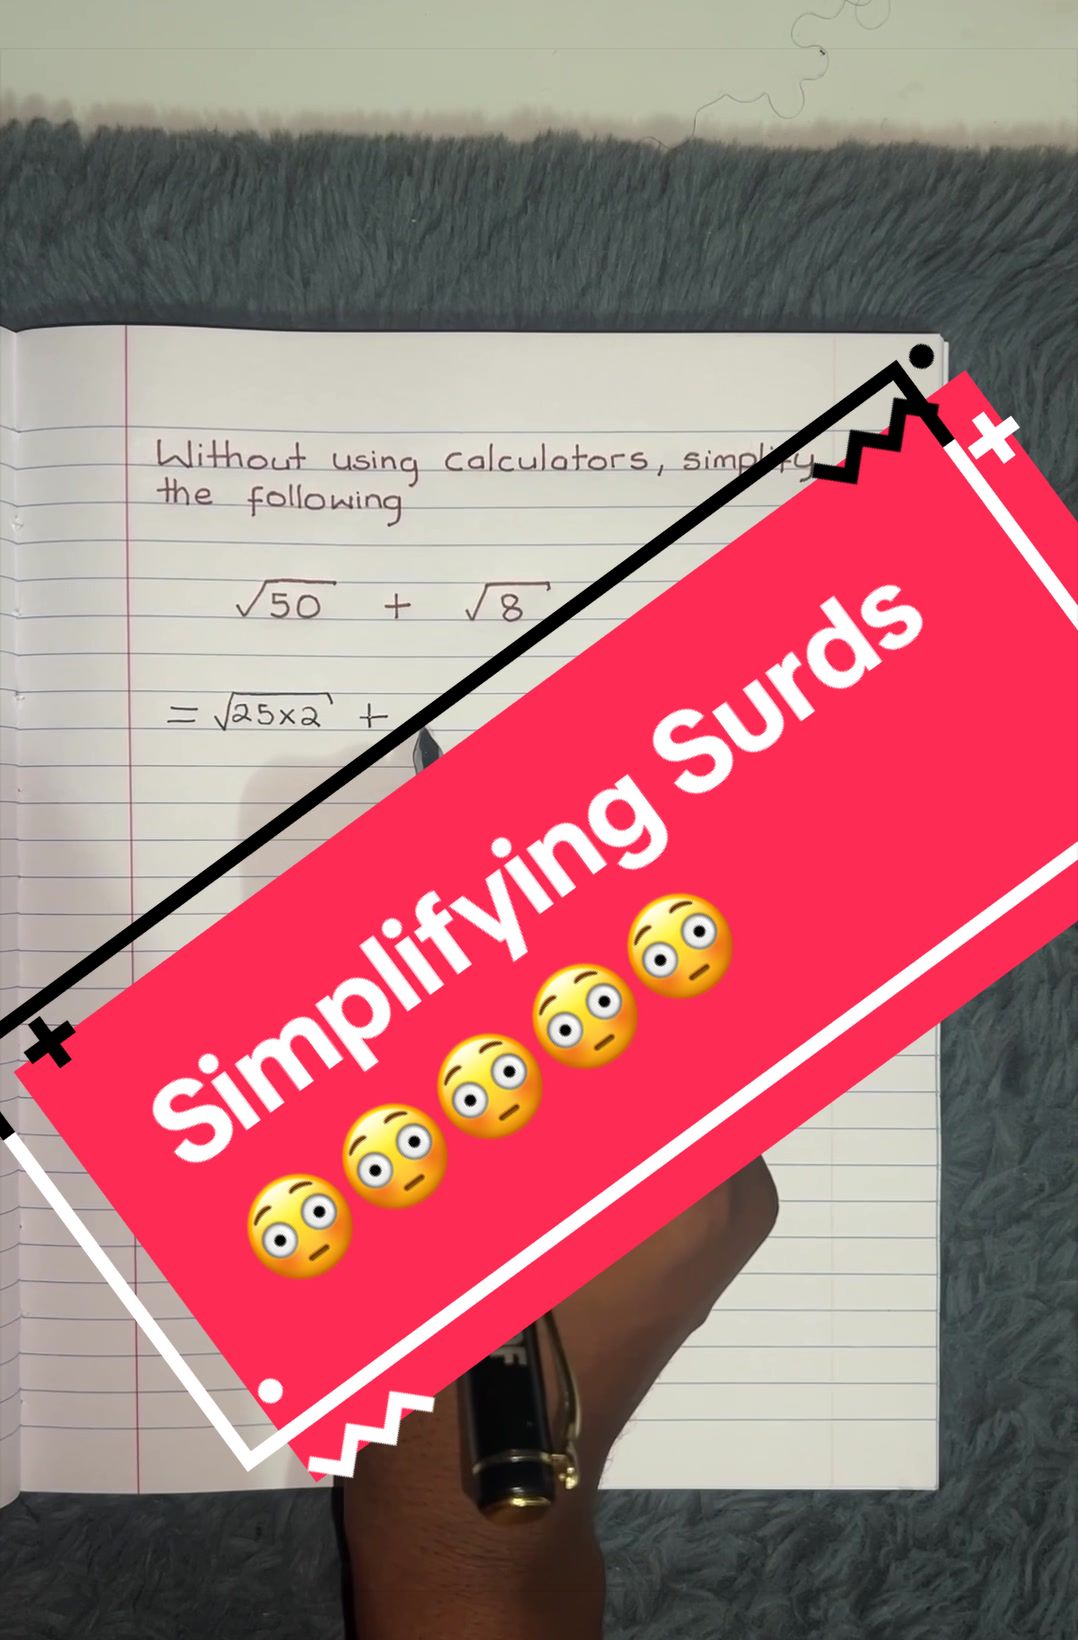 Without using calculators, simplify
the following
√50 + √8
= √25×2 +
Simplifying Surds
😳😳😳😳😳